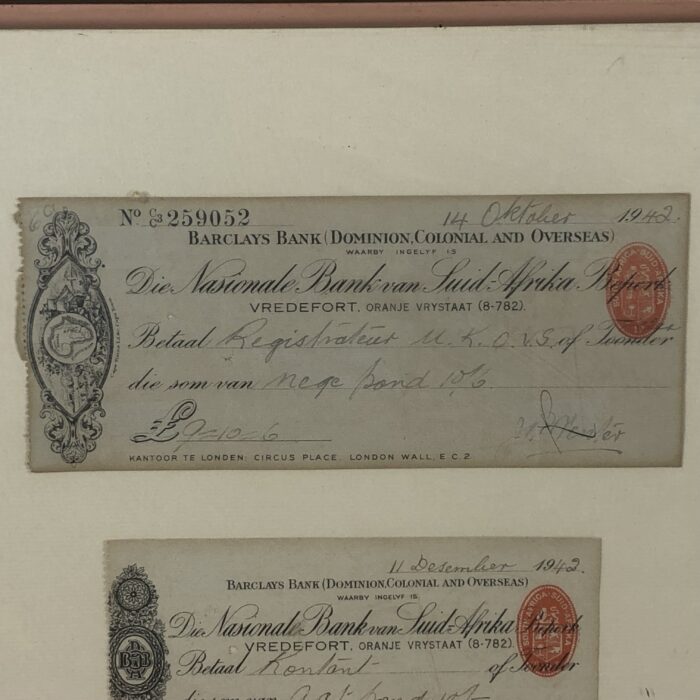 No C/C3 259052 14 Oktober 1942.
BARCLAYS BANK (DOMINION, COLONIAL AND OVERSEAS)
WAARBY INGELYF IS
Die Nasionale Bank van Suid-Afrika Beperk.
VREDEFORT, ORANJE VRYSTAAT (8-782).
Betaal Registrateur U. K. O. V. S. of Toonder
die som van nege pond 10/6
£ 9=10=6
KANTOOR TE LONDEN: CIRCUS PLACE, LONDON WALL, E.C.2.
11 Desember 1942.
BARCLAYS BANK (DOMINION, COLONIAL AND OVERSEAS)
WAARBY INGELYF IS
Die Nasionale Bank van Suid-Afrika Beperk
VREDEFORT, ORANJE VRYSTAAT (8-782).
Betaal Kontant of Toonder
die som van pond